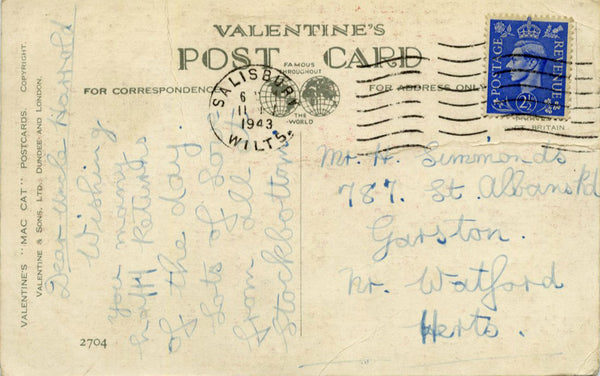 VALENTINE'S
POST CARD
FAMOUS
THROUGHOUT
THE
WORLD
FOR CORRESPONDENCE
FOR ADDRESS ONLY
SALISBURY
6
11
1943
WILTS.
POSTAGE
REVENUE
2½
BRITAIN
VALENTINE'S "MAC CAT" POSTCARDS. COPYRIGHT.
VALENTINE & SONS, LTD. DUNDEE AND LONDON.
2704
Dear Uncle Harrold
Wishing
you many
happy Returns
of the day.
Lots of Love
from all
Stockbottom
Mr. H. Simmonds
787. St. Albans Rd
Garston.
Nr. Watford
Herts.